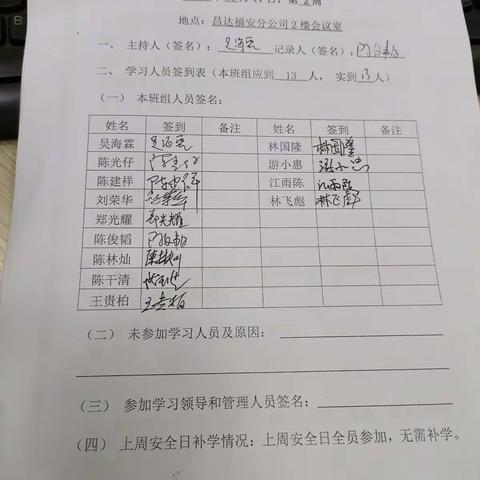 第2周
地点：昌达福安分公司2楼会议室
一、主持人（签名）：吴海霖 记录人（签名）：
二、学习人员签到表（本班组应到 13 人，实到 13 人）
（一）本班组人员签名：
姓名 签到 备注 姓名 签到 备注
吴海霖 吴海霖 林国隆 林国隆
陈光仔 陈光仔 游小惠 游小惠
陈建祥 陈建祥 江雨陈 江雨陈
刘荣华 刘荣华 林飞彪 林飞彪
郑光耀 郑光耀
陈俊韬
陈林灿 陈林灿
陈干清
王贵柏 王贵柏
（二）未参加学习人员及原因：
（三）参加学习领导和管理人员签名：
（四）上周安全日补学情况：上周安全日全员参加，无需补学。